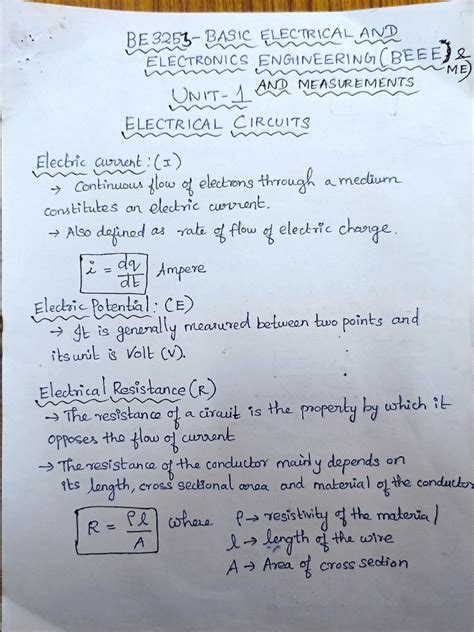 BE3253 - BASIC ELECTRICAL AND
ELECTRONICS ENGINEERING (BEEE) &
ME)
UNIT-1 AND MEASUREMENTS
ELECTRICAL CIRCUITS
Electric current : (I)
→ Continuous flow of electrons through a medium
constitutes an electric current.
→ Also defined as rate of flow of electric charge.
i = dq/dt Ampere
Electric Potential : (E)
→ It is generally measured between two points and
its unit is Volt (V).
Electrical Resistance (R)
→ The resistance of a circuit is the property by which it
opposes the flow of current
→ The resistance of the conductor mainly depends on
its length, cross sectional area and material of the conductor
R = ρl/A where ρ → resistivity of the material
l → length of the wire
A → Area of cross section